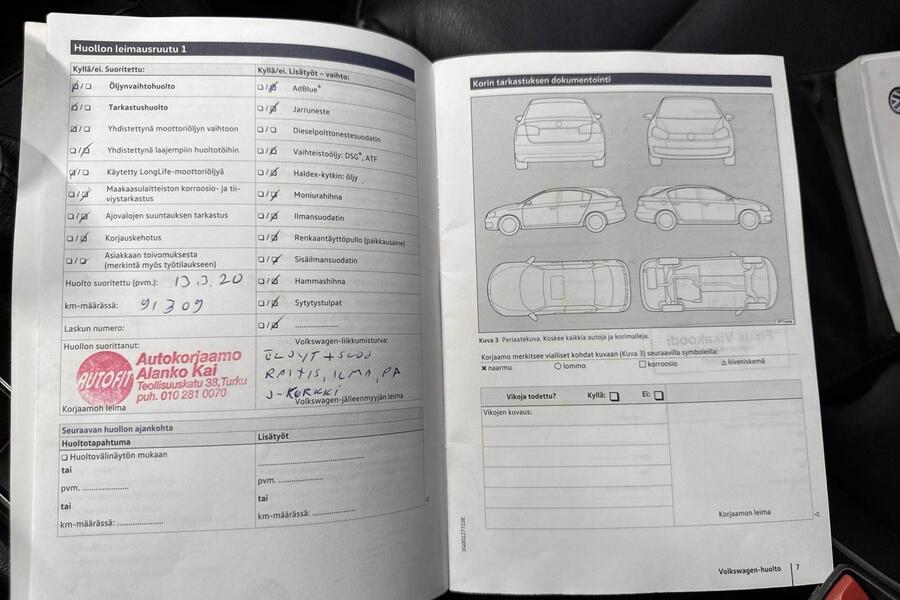 Huollon leimausruutu 1
Kyllä/ei. Suoritettu:
Öljynvaihtohuolto
Tarkastushuolto
Yhdistettynä moottoriöljyn vaihtoon
Yhdistettynä laajempiin huoltotöihin
Käytetty LongLife-moottoriöljyä
Maakaasulaitteiston korroosio- ja tii-
viystarkastus
Ajovalojen suuntauksen tarkastus
Korjauskehotus
Asiakkaan toivomuksesta
(merkintä myös työtilaukseen)
Huolto suoritettu (pvm.): 13.3.20
km-määrässä: 91309
Laskun numero:
Huollon suorittanut:
AUTOFIT
Autokorjaamo
Alanko Kai
Teollisuuskatu 38, Turku
puh. 010 281 0070
Korjaamon leima
Kyllä/ei. Lisätyöt – vaihto:
AdBlue®
Jarruneste
Dieselpolttonestesuodatin
Vaihteistoöljy: DSG®, ATF
Haldex-kytkin: öljy
Moniurahihna
Ilmansuodatin
Renkaantäyttöpullo (paikkausaine)
Sisäilmansuodatin
Hammashihna
Sytytystulpat
....................
Volkswagen-liikkumisturva:
RAITIS, ILMA, PA
J-KORKKI
Volkswagen-jälleenmyyjän leima
Seuraavan huollon ajankohta
Huoltotapahtuma
Huoltovälinäytön mukaan
tai
pvm. ....................
tai
km-määrässä: ....................
Lisätyöt
........................................
pvm. ....................
tai
km-määrässä: ....................
Korin tarkastuksen dokumentointi
Kuva 3 Periaatekuva. Koskee kaikkia autoja ja korimalleja.
Korjaamo merkitsee vialliset kohdat kuvaan (Kuva 3) seuraavilla symboleilla:
× naarmu ○ lommo □ korroosio △ kiveniskemä
Vikoja todettu? Kyllä: □ Ei: □
Vikojen kuvaus:
Korjaamon leima
Volkswagen-huolto 7